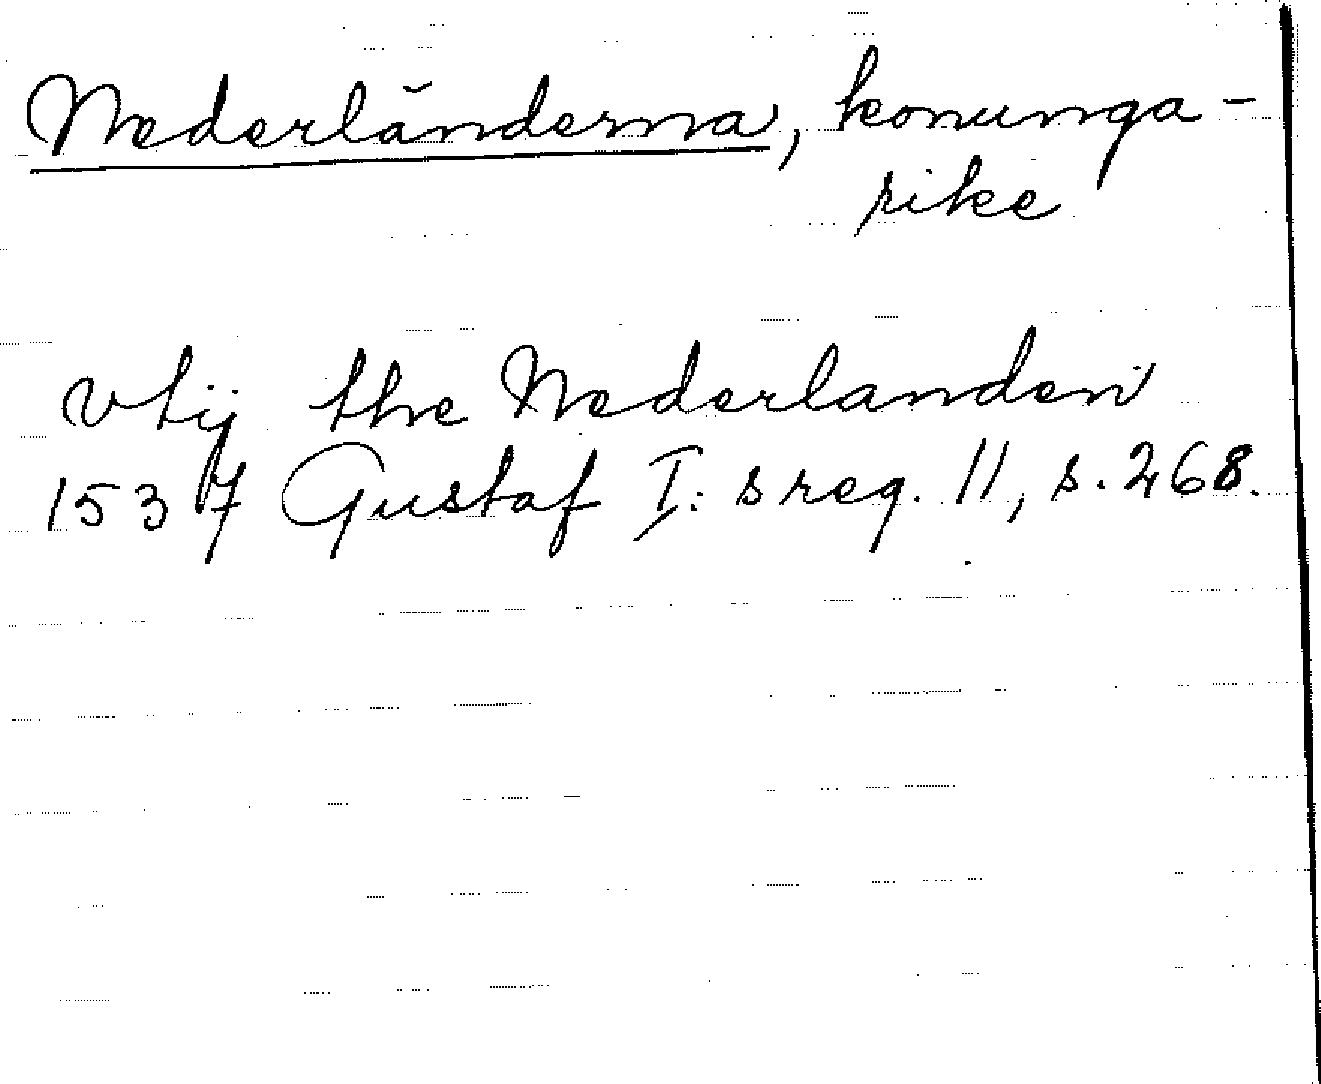 Nederländerna, konunga-
rike
vtij the Nederlanden
1537 Gustaf I:s reg. 11, s. 268.